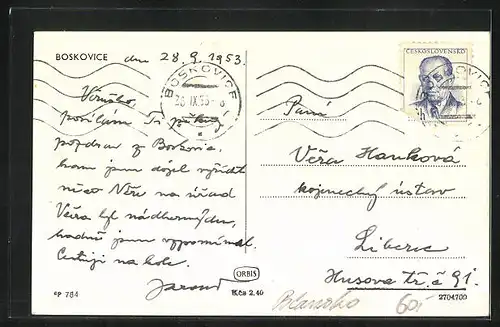 BOSKOVICE dne 28.9.1953.
Věruško,
posílám Ti pěkný
pozdrav z Boskovic,
kam jsem dojel vyřídit
něco na úřad
Včera byl nádherný den,
hodně jsem vzpomínal.
Cestuji na kole.
ČESKOSLOVENSKO
BOSKOVICE
28.IX.53
Paní
Věra Hanková
kojenecký ústav
Liberec
Husova tř. č 91.
ORBIS
Kčs 2.40
cp 784
Blansko
60
2704700